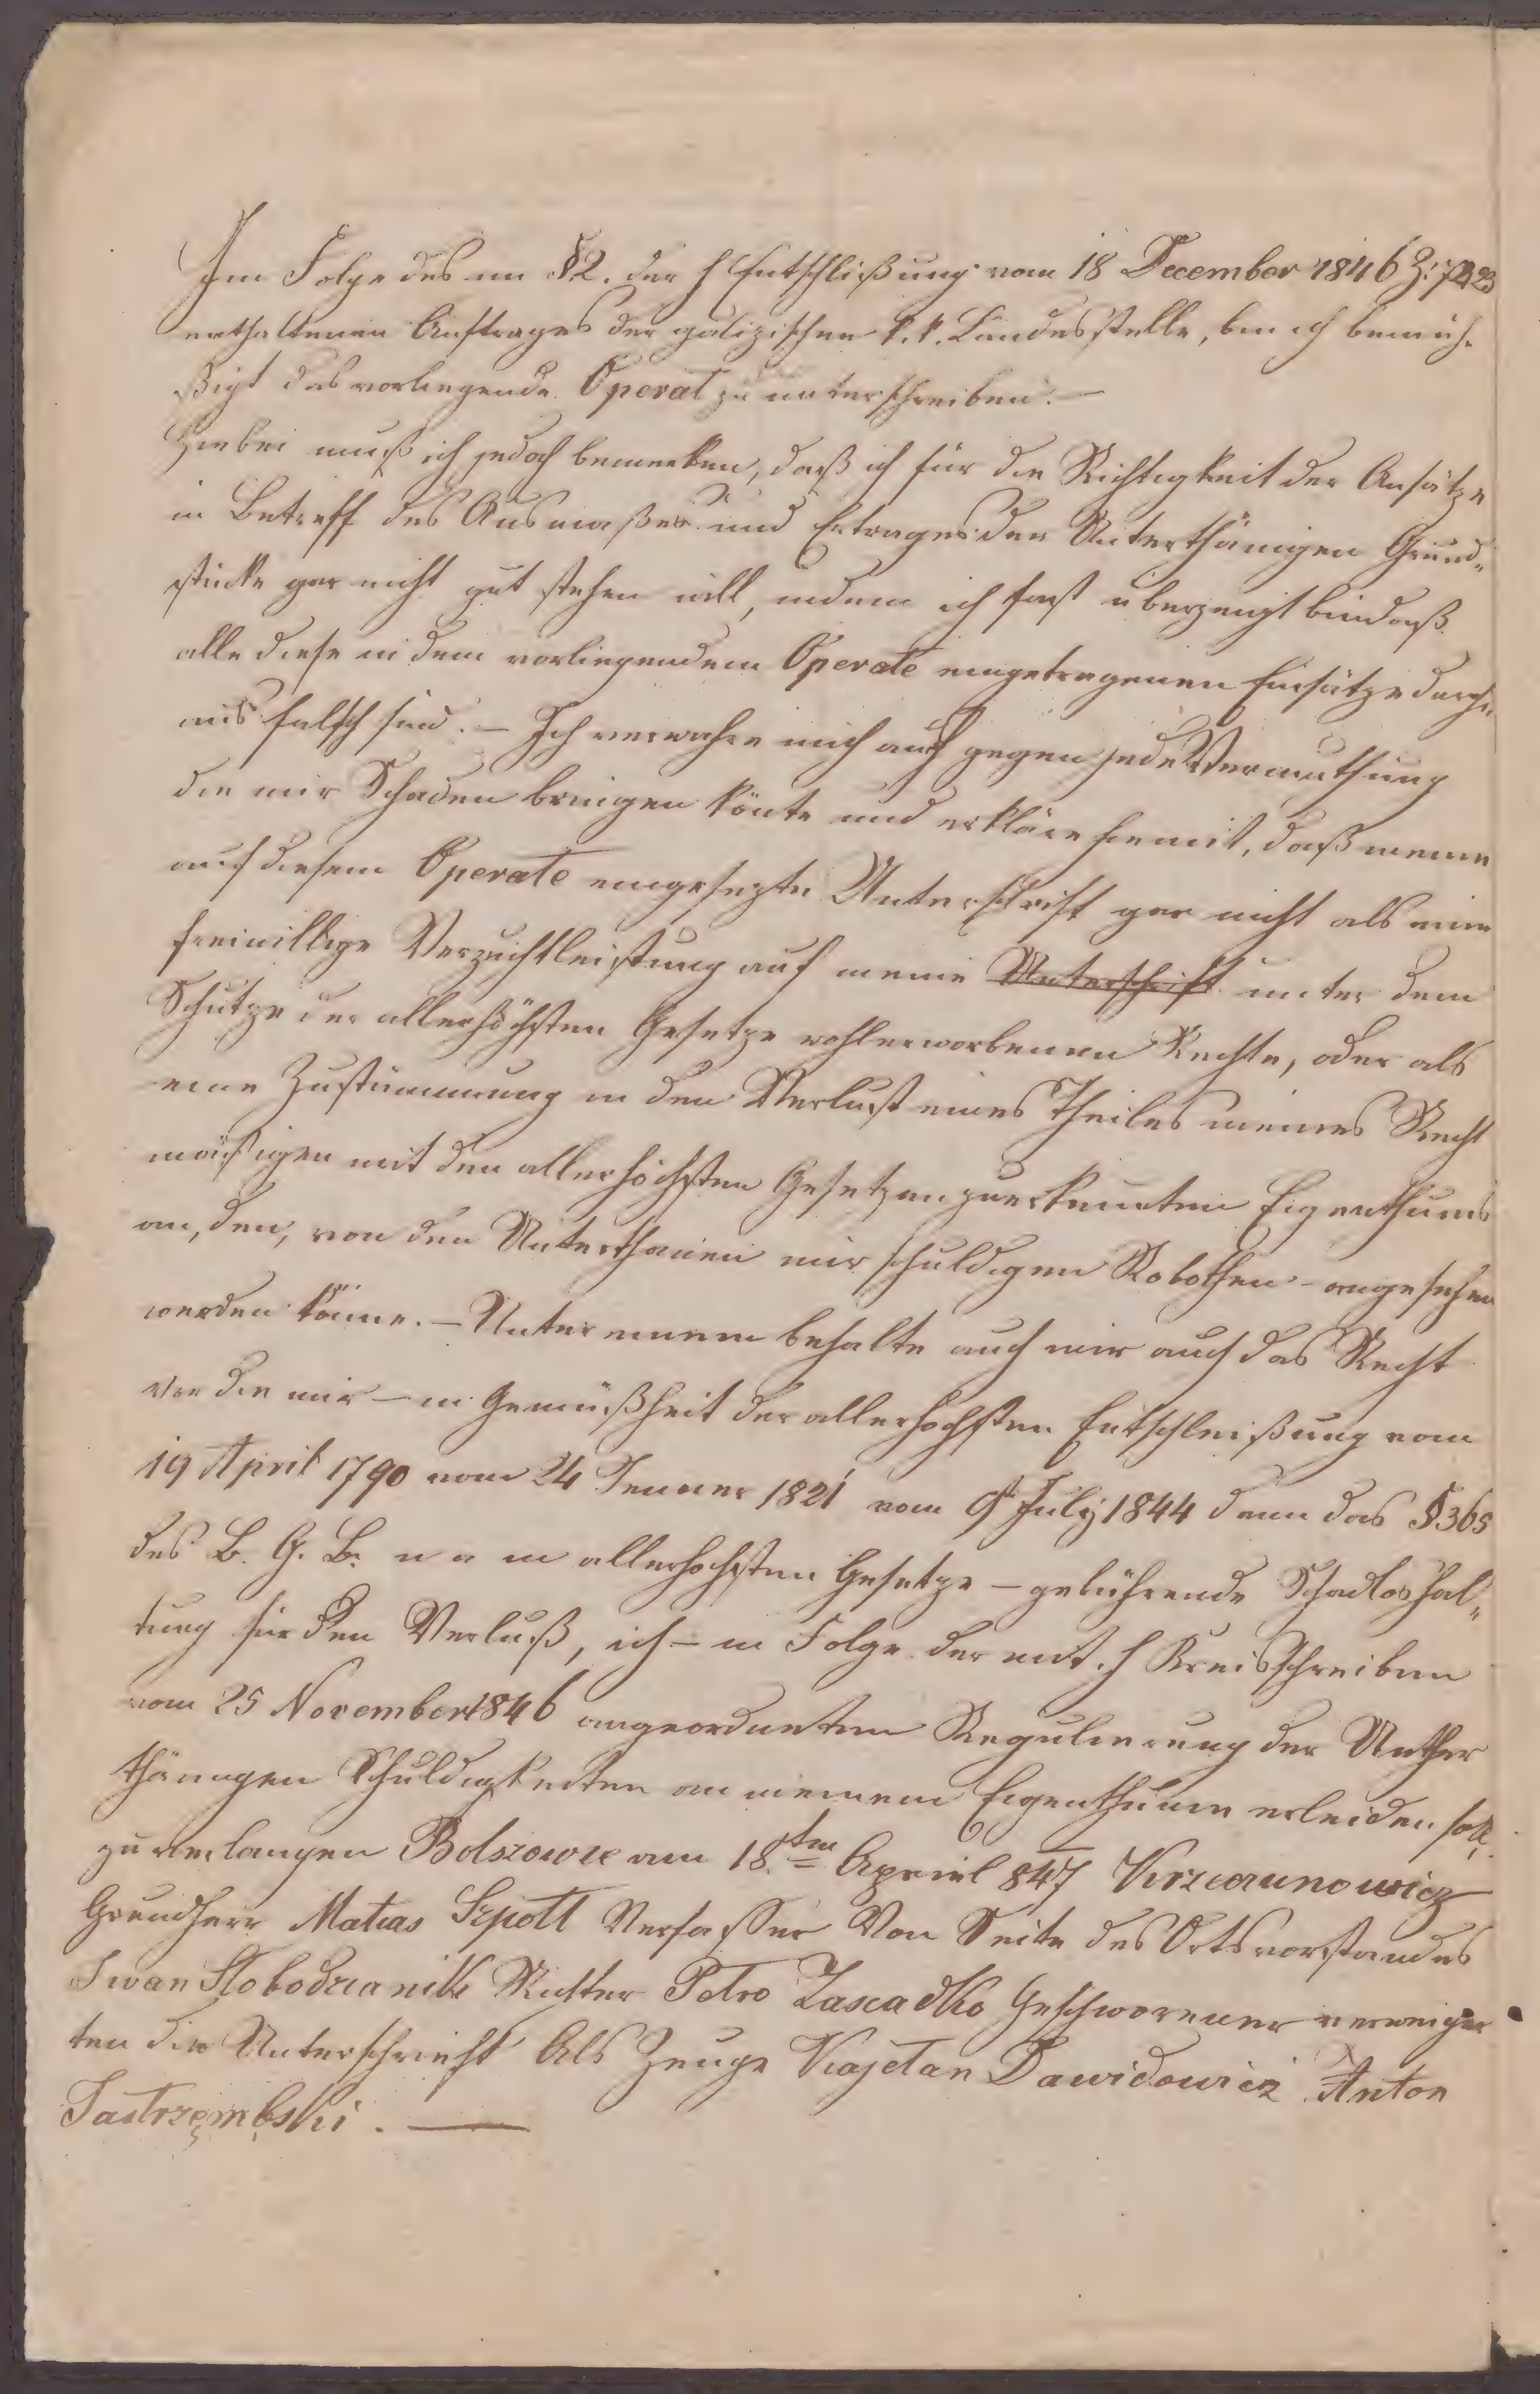 Im Folge des im §2. der h Entschlißung vom 18 December 1846 Z: 72423
enthaltenen Auftrages der galizischen k. k. Landesstelle, bin ich bemüh-
ßigt das vorliegende Operat zu unterschreiben. —
Hiebei muß ich jedoch bemerken, daß ich für die Richtigkeit der Ansätze
in Betreff des Ausmaßes und Ertrages der Unterthänigen Grund„
stücke gar nicht gut stehen will, indem ich fast überzeugt bin daß
alle diese in dem vorliegendem Operate eingetragenen Einsätze durch„
aus falsch sind. — Ich verwahre mich auch gegen jede Vermuthung
die mir Schaden bringen könte und erkläre hiemit, daß meine
auf diesem Operate eingesezte Unterschrift gar nicht als eine
freiwillige Verzichtleistung auf meine Unterschrift unter dem
Schutze der allerhöchsten Gesetze wohlerworbenen Rechte, oder als
eine Zustimmung in den Verlust eines Theiles meines Recht
mäßigen mit den allerhöchsten Gesetzen zuerkannten Eigenthums
an, den, von den Unterthanen mir schuldigen Robothen – angesehen
werden könne. — Unter einem behalte auch mir auch das Recht
vor die mir — in Gemäßheit der allerhöchsten Entschleißung vom
19 April 1790 vom 24 Jenner 1821 vom 9t July 1844 dann das §365
des B. G. B. u a m allerhochsten Gesetze — gebührende Schadloshal„
tung für den Verluß, ich — in Folge der mit h Kreisschreiben
vom 25 November 1846 angeordneten Regulierung der Unther
thänigen Schuldigkeiten an meinem Eigenthum erleiden soll,
zu verlangen Bolszowce am 18ten Apriel 847
Grundherr Matias Szpott Verfasser Von Seite des Ortsvorstandes
Iwan Slobodzianik Richter Petro Geschworener
ten die Unterschrieft Als Zeuge Kajetan Dawidowicz Anton
Jastrzęmbski. —